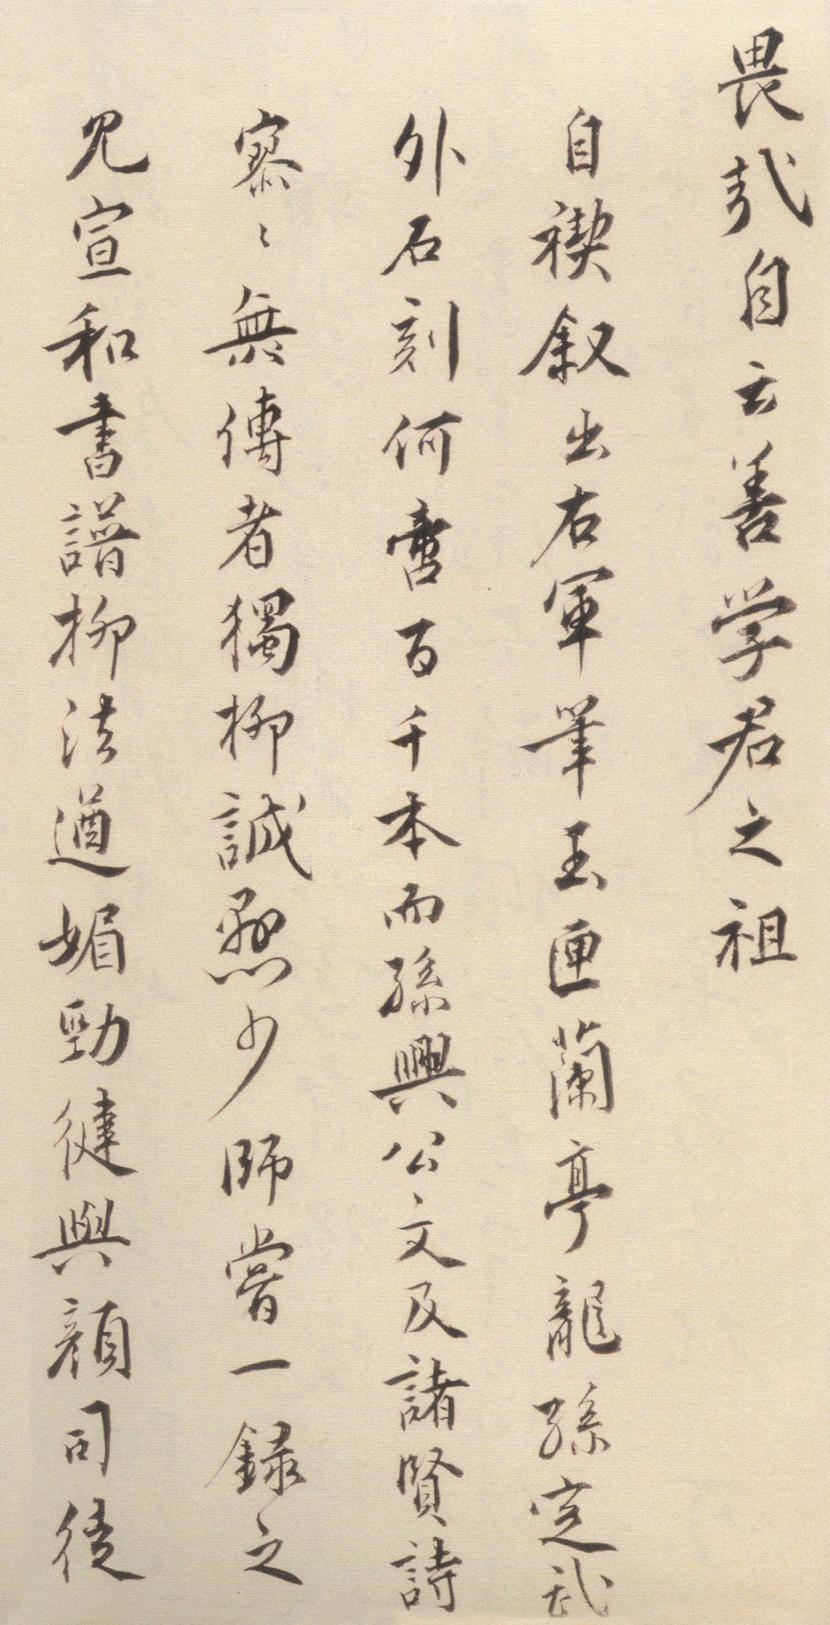 畏哉自云善学君之祖
自禊叙出右軍筆玉匣蘭亭龍孫定武
外石刻何啻百千本而孫興公文及諸賢詩
寥〻無傳者獨柳誠懸少師嘗一録之
見宣和書譜柳法遒媚勁健與顔司徒